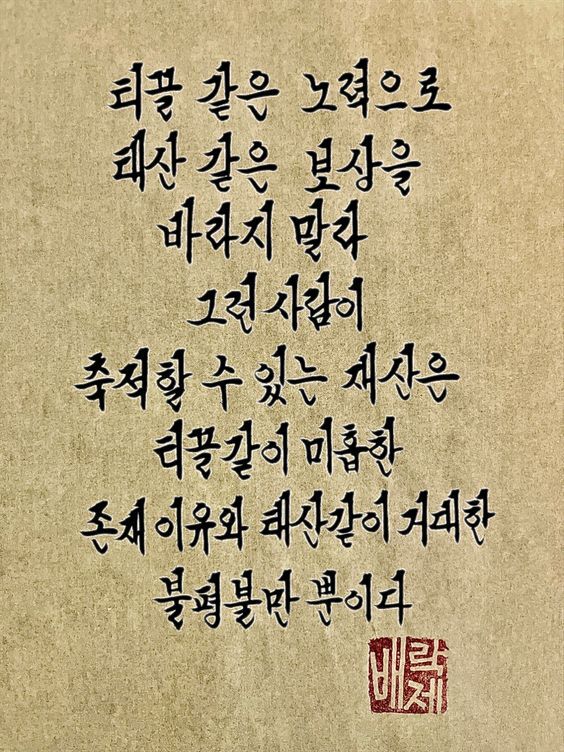 티끌 같은 노력으로
태산 같은 보상을
바라지 말라
그런 사람이
축적할 수 있는 재산은
티끌같이 미흡한
존재 이유와 태산같이 거대한
불평불만 뿐이다
락
배제